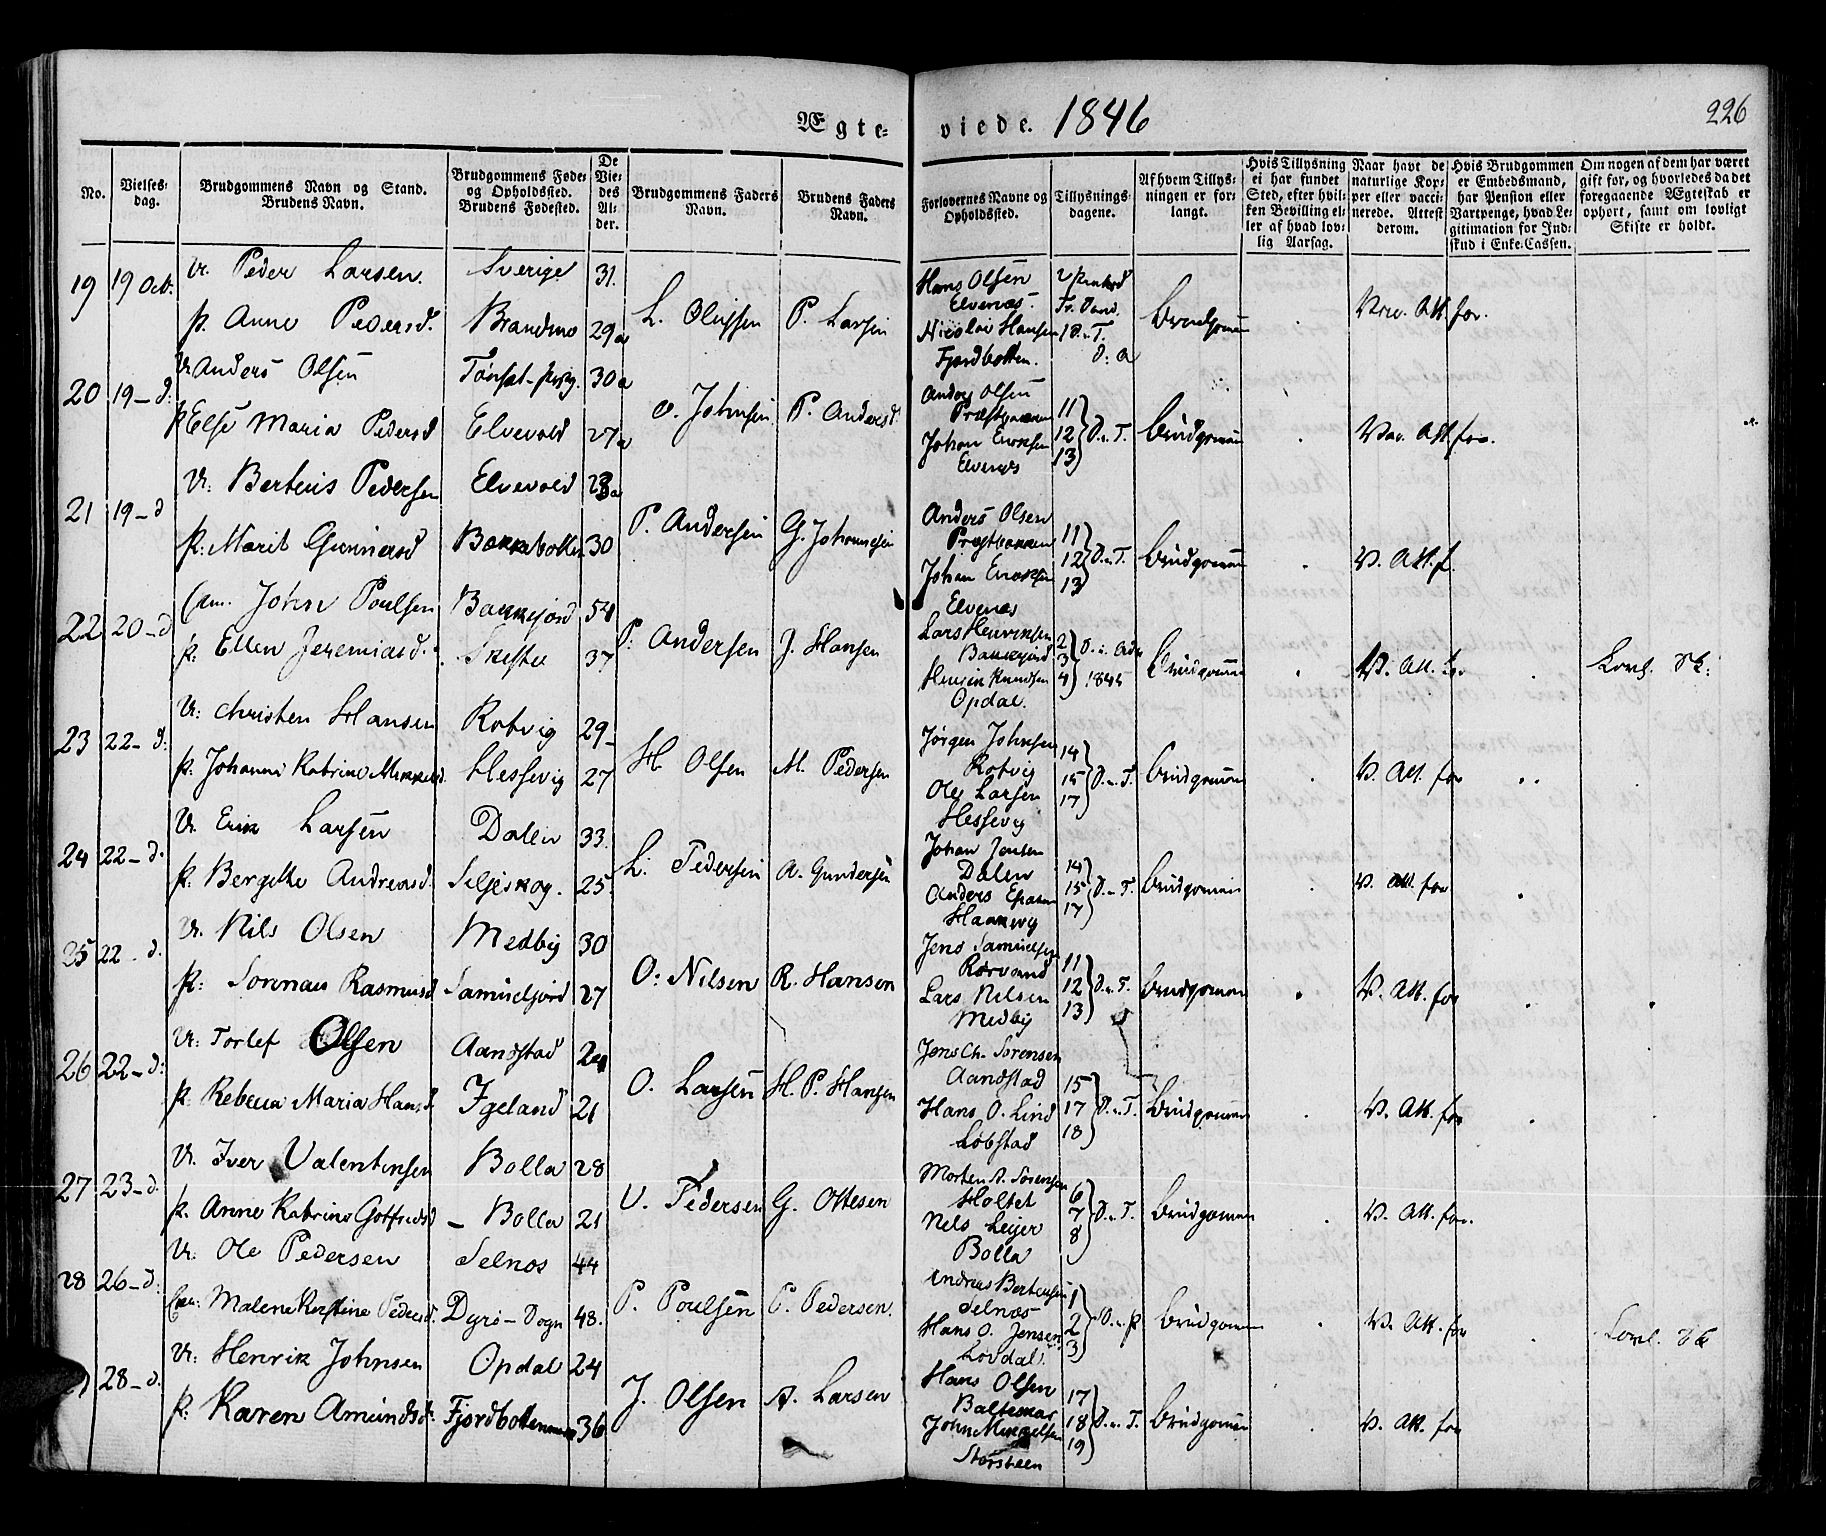 Ægte-viede. 1846
226
No.
Vielses-dag.
Brudgommens Navn og Stand. Brudens Navn.
Brudgommens Føde- og Opholdssted. Brudens Fødested.
De Vie-des Al-der.
Brudgommens Faders Navn.
Brudens Faders Navn.
Forlovernes Navne og Opholdssted.
Tillysnings-dagene.
Af hvem Tillys-ningen er for-langt.
Hvis Tillysning ei har fundet Sted, efter hvil-ken Bevilling el-ler af hvad lov-lig Aarsag.
Naar havt de naturlige Kop-per eller vacci-nerede. Attest derom.
Hvis Brudgommen er Embedsmand, har Pension eller Vartpenge, hvad Le-gitimation for Ind-skud i Enke-Cassen.
Om nogen af dem har været gift før, og hvorledes da det foregaaende Ægteskab er ophørt, samt om lovligt Skifte er holdt.
19 19 Oct. U. Peder Larsen. Sverige 31. L. Olufsen P. Larsen
p. Anne Pedersd. 29a
Hans Olsen
Elvenæs.
Nicolai Hansen D. u. T.
Fjordbotten.
Brudgommen
Vac. Att. for.
20 19 – d: U Anders Olsen 30a O. Johnsen P. Anders
p Else Maria Pedersd Elvevold 27a
Anders Olsen
Præstbakken 11
Johan Ericksen 12 D. u. T.
Elvenæs 13
Brudgommen
Vac. Att. for.
21 19 – d U: Bertius Pedersen Elvevold P. Andersen G. Johannesen
p: Marit Gunnersd Bakkebotten 30
Anders Olsen
Præstbakken 11
Johan Ericksen 12 D. u. T.
Elvenæs 13
Brudgommen
V. Att. f.
22 20 – d Em. John Poulsen Bakkejord 54 P. Andersen J. Hansen
p: Ellen Jeremiasd. 37
Lars Henriksen
Bakkejord 2
Henrik Knudsen 3
Opdal. 4 1845
Brudgommen
V. Att. for
Lovl. Sk:
23 22 – d: U: Christen Hansen Kotvig 29 – H Olsen M. Pedersen
p. Johanne Katrine Mikkelsd. Hessevig 27
Jørgen Johnsen
Kotvig 14
Ole Larsen 15 D. u. T.
Hessevig 17
Brudgommen
V. Att. for
24 22 – d. U. Erik Larsen Dalen 33. L: Pedersen A. Gundersen
p. Bergitte Andreasd. Seljeskog. 25.
Johan Jensen
Dalen 14
Anders 15 D. u. T.
Haakevig 17
Brudgommen
V. Att. for
25 22 – d. U. Nils Olsen Medby 30 O: Nilsen R. Hansen
p: Sorenau Rasmusd Samuelfjord 27
Jens Samuelsen
Rørvand 11
Lars Nilsen 12 D. u. T.
Medby 13
Brudgommen
V. Att. for
26 22 – d: U: Torlef Olsen Aandstad 24 O. Larsen H. P. Hansen
p. Rebecca Maria Hansd Igeland 21
Jens Ch. Sørensen
Aandstad 15
Hans O. Lind 17 D. u. T.
Løbstad 18
Brudgommen
V. Att. for
27 23 – d. U. Iver Valentinsen Bolla 28 V. Pedersen G. Ottesen
p. Anne Katrine Gotfredsd – Bolla 21
Morten A. Sørensen
Holtet 6
Nels Lejer 7 D. u. T.
Bolla 8
Brudgommen
V. Att. for.
28 26 – d: U. Ole Pedersen Selnæs 44 P. Poulsen P. Pedersen.
Malene Kirstine Pedersd. Dyrø – Sogn 48.
Andreas Bertheusen
Selnæs 1
Hans O. Jensen 2 D. u. p
Løvdal. 3
Brudgommen
V. Att. for
Lovl. Sk
28 – d. U. Henrik Johnsen Opdal 24 J. Olsen A. Larsen
p. Karen Amundsd. Fjordbotten 36
Hans Olsen
Balteskar 17
John Mikkelsen 18 D. u. T.
Storsteen 19
Brudgommen
V. Att. for